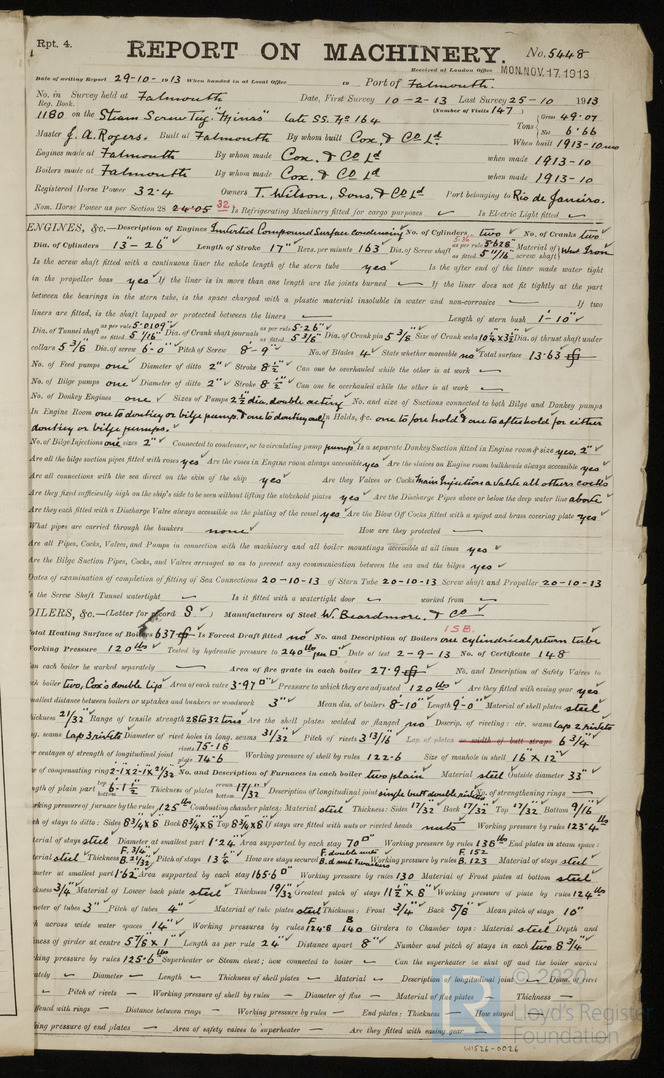 Rpt. 4.
REPORT ON MACHINERY.
No. 5448
Received at London Office MON. NOV. 17. 1913
Date of writing Report 29-10-1913 When handed in at Local Office to Port of Falmouth.
No. in Survey held at Falmouth Date, First Survey 10-2-13 Last Survey 25-10 1913
Reg. Book. (Number of Visits 147)
1180 on the Steam Screw Tug "Minas" late SS. No 164 Tons Gross 49.07 Net 6.66
Master J. A. Rogers. Built at Falmouth By whom built Cox & Co Ld When built 1913-10
Engines made at Falmouth By whom made Cox & Co Ld when made 1913-10
Boilers made at Falmouth By whom made Cox & Co Ld when made 1913-10
Registered Horse Power 32.4 Owners T. Wilson, Sons, & Co Ld Port belonging to Rio de Janeiro.
Nom. Horse Power as per Section 28 24.05 32 Is Refrigerating Machinery fitted for cargo purposes Is Electric Light fitted
ENGINES, &c.—Description of Engines Inverted Compound Surface condensing No. of Cylinders two No. of Cranks two
Dia. of Cylinders 13"-26" Length of Stroke 17" Revs. per minute 163 Dia. of Screw shaft as per rule 5.628" 5.36 as fitted 5 11/16" Material of screw shaft Wrot Iron
Is the screw shaft fitted with a continuous liner the whole length of the stern tube yes Is the after end of the liner made water tight
in the propeller boss yes If the liner is in more than one length are the joints burned — If the liner does not fit tightly at the part
between the bearings in the stern tube, is the space charged with a plastic material insoluble in water and non-corrosive — If two
liners are fitted, is the shaft lapped or protected between the liners — Length of stern bush 1'-10"
Dia. of Tunnel shaft as per rule 5.0109" as fitted 5 1/16" Dia. of Crank shaft journals as per rule 5.26" as fitted 5 3/8" Dia. of Crank pin 5 3/8" Size of Crank webs 10 1/4 x 3 1/2 Dia. of thrust shaft under
collars 5 3/8" Dia. of screw 6'-0" Pitch of Screw 8'-9" No. of Blades 4 State whether moveable no Total surface 13.63
No. of Feed pumps one Diameter of ditto 2" Stroke 8 1/2" Can one be overhauled while the other is at work —
No. of Bilge pumps one Diameter of ditto 2" Stroke 8 1/2" Can one be overhauled while the other is at work —
No. of Donkey Engines one Sizes of Pumps 2 1/2 dia, double acting No. and size of Suctions connected to both Bilge and Donkey pumps
In Engine Room one to donkey or bilge pump, & one to donkey only In Holds, &c. one to fore hold & one to aftes hold for either
donkey or bilge pumps.
No. of Bilge Injections one sizes 2" Connected to condenser, or to circulating pump pump Is a separate Donkey Suction fitted in Engine room & size yes, 2"
Are all the bilge suction pipes fitted with roses yes Are the roses in Engine room always accessible yes Are the sluices on Engine room bulkheads always accessible yes
Are all connections with the sea direct on the skin of the ship yes Are they Valves or Cocks Main Injection a valve all others cocks
Are they fixed sufficiently high on the ship's side to be seen without lifting the stokehold plates yes Are the Discharge Pipes above or below the deep water line above
Are they each fitted with a Discharge Valve always accessible on the plating of the vessel yes Are the Blow Off Cocks fitted with a spigot and brass covering plate yes
What pipes are carried through the bunkers none How are they protected —
Are all Pipes, Cocks, Valves, and Pumps in connection with the machinery and all boiler mountings accessible at all times yes
Are the Bilge Suction Pipes, Cocks, and Valves arranged so as to prevent any communication between the sea and the bilges yes
Dates of examination of completion of fitting of Sea Connections 20-10-13 of Stern Tube 20-10-13 Screw shaft and Propeller 20-10-13
Is the Screw Shaft Tunnel watertight — Is it fitted with a watertight door — worked from —
OILERS, &c.—(Letter for record S) Manufacturers of Steel W. Beardmore, & Co
1 SB.
Total Heating Surface of Boilers 637 Is Forced Draft fitted no No. and Description of Boilers one cylindrical return tube
Working Pressure 120 lbs Tested by hydraulic pressure to 240 lbs per □" Date of test 2-9-13 No. of Certificate 148
an each boiler be worked separately — Area of fire grate in each boiler 27.9 No. and Description of Safety Valves to
ch boiler two, Cox's double lip Area of each valve 3.97 □" Pressure to which they are adjusted 120 lbs Are they fitted with easing gear yes
mallest distance between boilers or uptakes and bunkers or woodwork 3" Mean dia. of boilers 8'-10" Length 9'-0" Material of shell plates steel
hickness 21/32 Range of tensile strength 28 to 32 tons Are the shell plates welded or flanged no Descrip. of riveting: cir. seams lap 2 rivets
g. seams lap 3 rivets Diameter of rivet holes in long. seams 31/32 Pitch of rivets 3 13/16 Lap of plates or width of butt straps 6 3/4"
er centages of strength of longitudinal joint rivets 75.16 plate 74.6 Working pressure of shell by rules 122.6 Size of manhole in shell 16" x 12"
e of compensating ring 2'-1 x 2'-1 x 21/32 No. and Description of Furnaces in each boiler two plain Material steel Outside diameter 33"
ngth of plain part top 6'-1 1/2" bottom Thickness of plates crown bottom 17/32 Description of longitudinal joint single butt double riveted No. of strengthening rings —
rking pressure of furnace by the rules 125 lbs Combustion chamber plates: Material steel Thickness: Sides 17/32 Back 17/32 Top 17/32 Bottom 9/16
ch of stays to ditto: Sides 8 3/4 x 8 Back 8 3/4 x 8 Top 8 3/4 x 8 If stays are fitted with nuts or riveted heads nuts Working pressure by rules 123.4 lbs
terial of stays steel Diameter at smallest part 1.24 Area supported by each stay 70 □" Working pressure by rules 138 lbs End plates in steam space:
terial steel Thickness F. 3/4" B. 21/32 Pitch of stays 13 1/2" How are stays secured F. double nuts B. d. nuts & washers Working pressure by rules F. 152 B. 123 Material of stays steel
meter at smallest part 1.62 Area supported by each stay 165.6 □" Working pressure by rules 130 Material of Front plates at bottom steel
ckness 3/4" Material of Lower back plate steel Thickness 19/32 Greatest pitch of stays 11 1/2 x 8" Working pressure of plate by rules 124 lbs
meter of tubes 3" Pitch of tubes 4" Material of tube plates steel Thickness: Front 3/4" Back 5/8" Mean pitch of stays 10"
ch across wide water spaces 14" Working pressures by rules F 124.8 B 140 Girders to Chamber tops: Material steel Depth and
ckness of girder at centre 5 7/8 x 1" Length as per rule 24" Distance apart 8" Number and pitch of stays in each two 8 3/4"
rking pressure by rules 125.6 lbs Superheater or Steam chest; how connected to boiler — Can the superheater be shut off and the boiler worked
rately — Diameter — Length — Thickness of shell plates — Material — Description of longitudinal joint — Diam. of rivet
— Pitch of rivets — Working pressure of shell by rules — Diameter of flue — Material of flue plates — Thickness —
ffened with rings — Distance between rings — Working pressure by rules — End plates: Thickness — How stayed —
ing pressure of end plates — Area of safety valves to superheater — Are they fitted with easing gear —
© 2020
Lloyd's Register
Foundation
W1526-0026